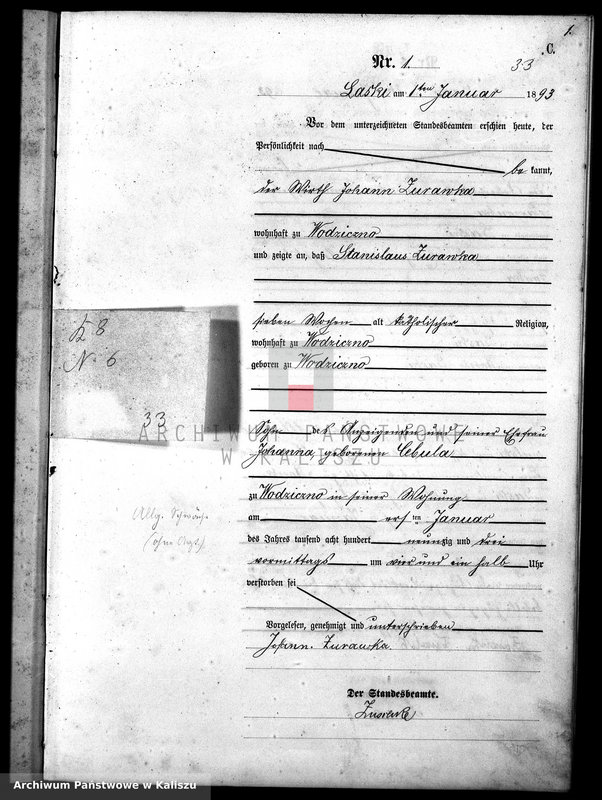 1.
C.
Nr. 1.
33
Laski am 1ten Januar 1893
Vor dem unterzeichneten Standesbeamten erschien heute, der
Persönlichkeit nach
bekannt,
der Wirth Johann Zurawka
wohnhaft zu Wodziczno
und zeigte an, daß Stanislaus Zurawka
sieben Wochen alt katholischer Religion,
wohnhaft zu Wodziczno
geboren zu Wodziczno
K 8
N. 6
33
Sohn des Anzeigenden und seiner Ehefrau
Johanna, geborenen Cebula
ARCHIWUM PAŃSTWOWE
W KALISZU
zu Wodziczno in seiner Wohnung
am ersten Januar
des Jahres tausend acht hundert neunzig und drei
vormittags um vier und ein halb Uhr
verstorben sei
Allg. Schwäche
(ohne Arzt)
Vorgelesen, genehmigt und unterschrieben
Johann Zurawka
Der Standesbeamte.
Archiwum Państwowe w Kaliszu